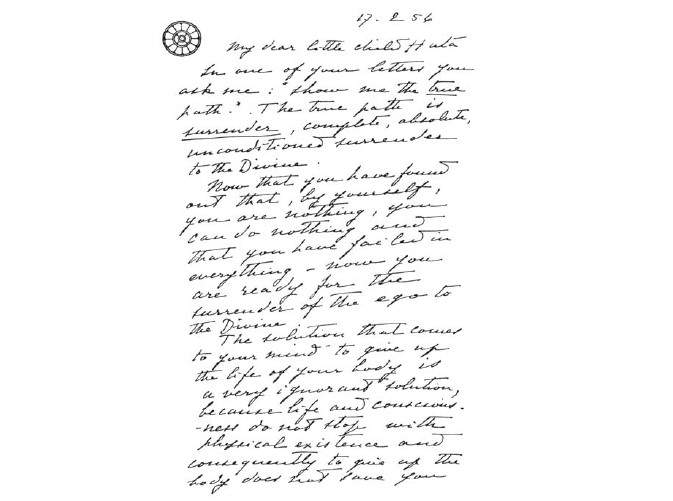 17. 2 56
My dear little child Huta
In one of your letters you
ask me : "show me the true
path." The true path is
surrender, complete, absolute,
unconditioned surrender
to the Divine.
Now that you have found
out that, by yourself,
you are nothing, you
can do nothing and
that you have failed in
everything – now you
are ready for the
surrender of the ego to
the Divine.
The solution that comes
to your mind "to give up
the life of your body" is
a very ignorant solution,
because life and conscious-
-ness do not stop with
physical existence and
consequently to give up the
body does not save you